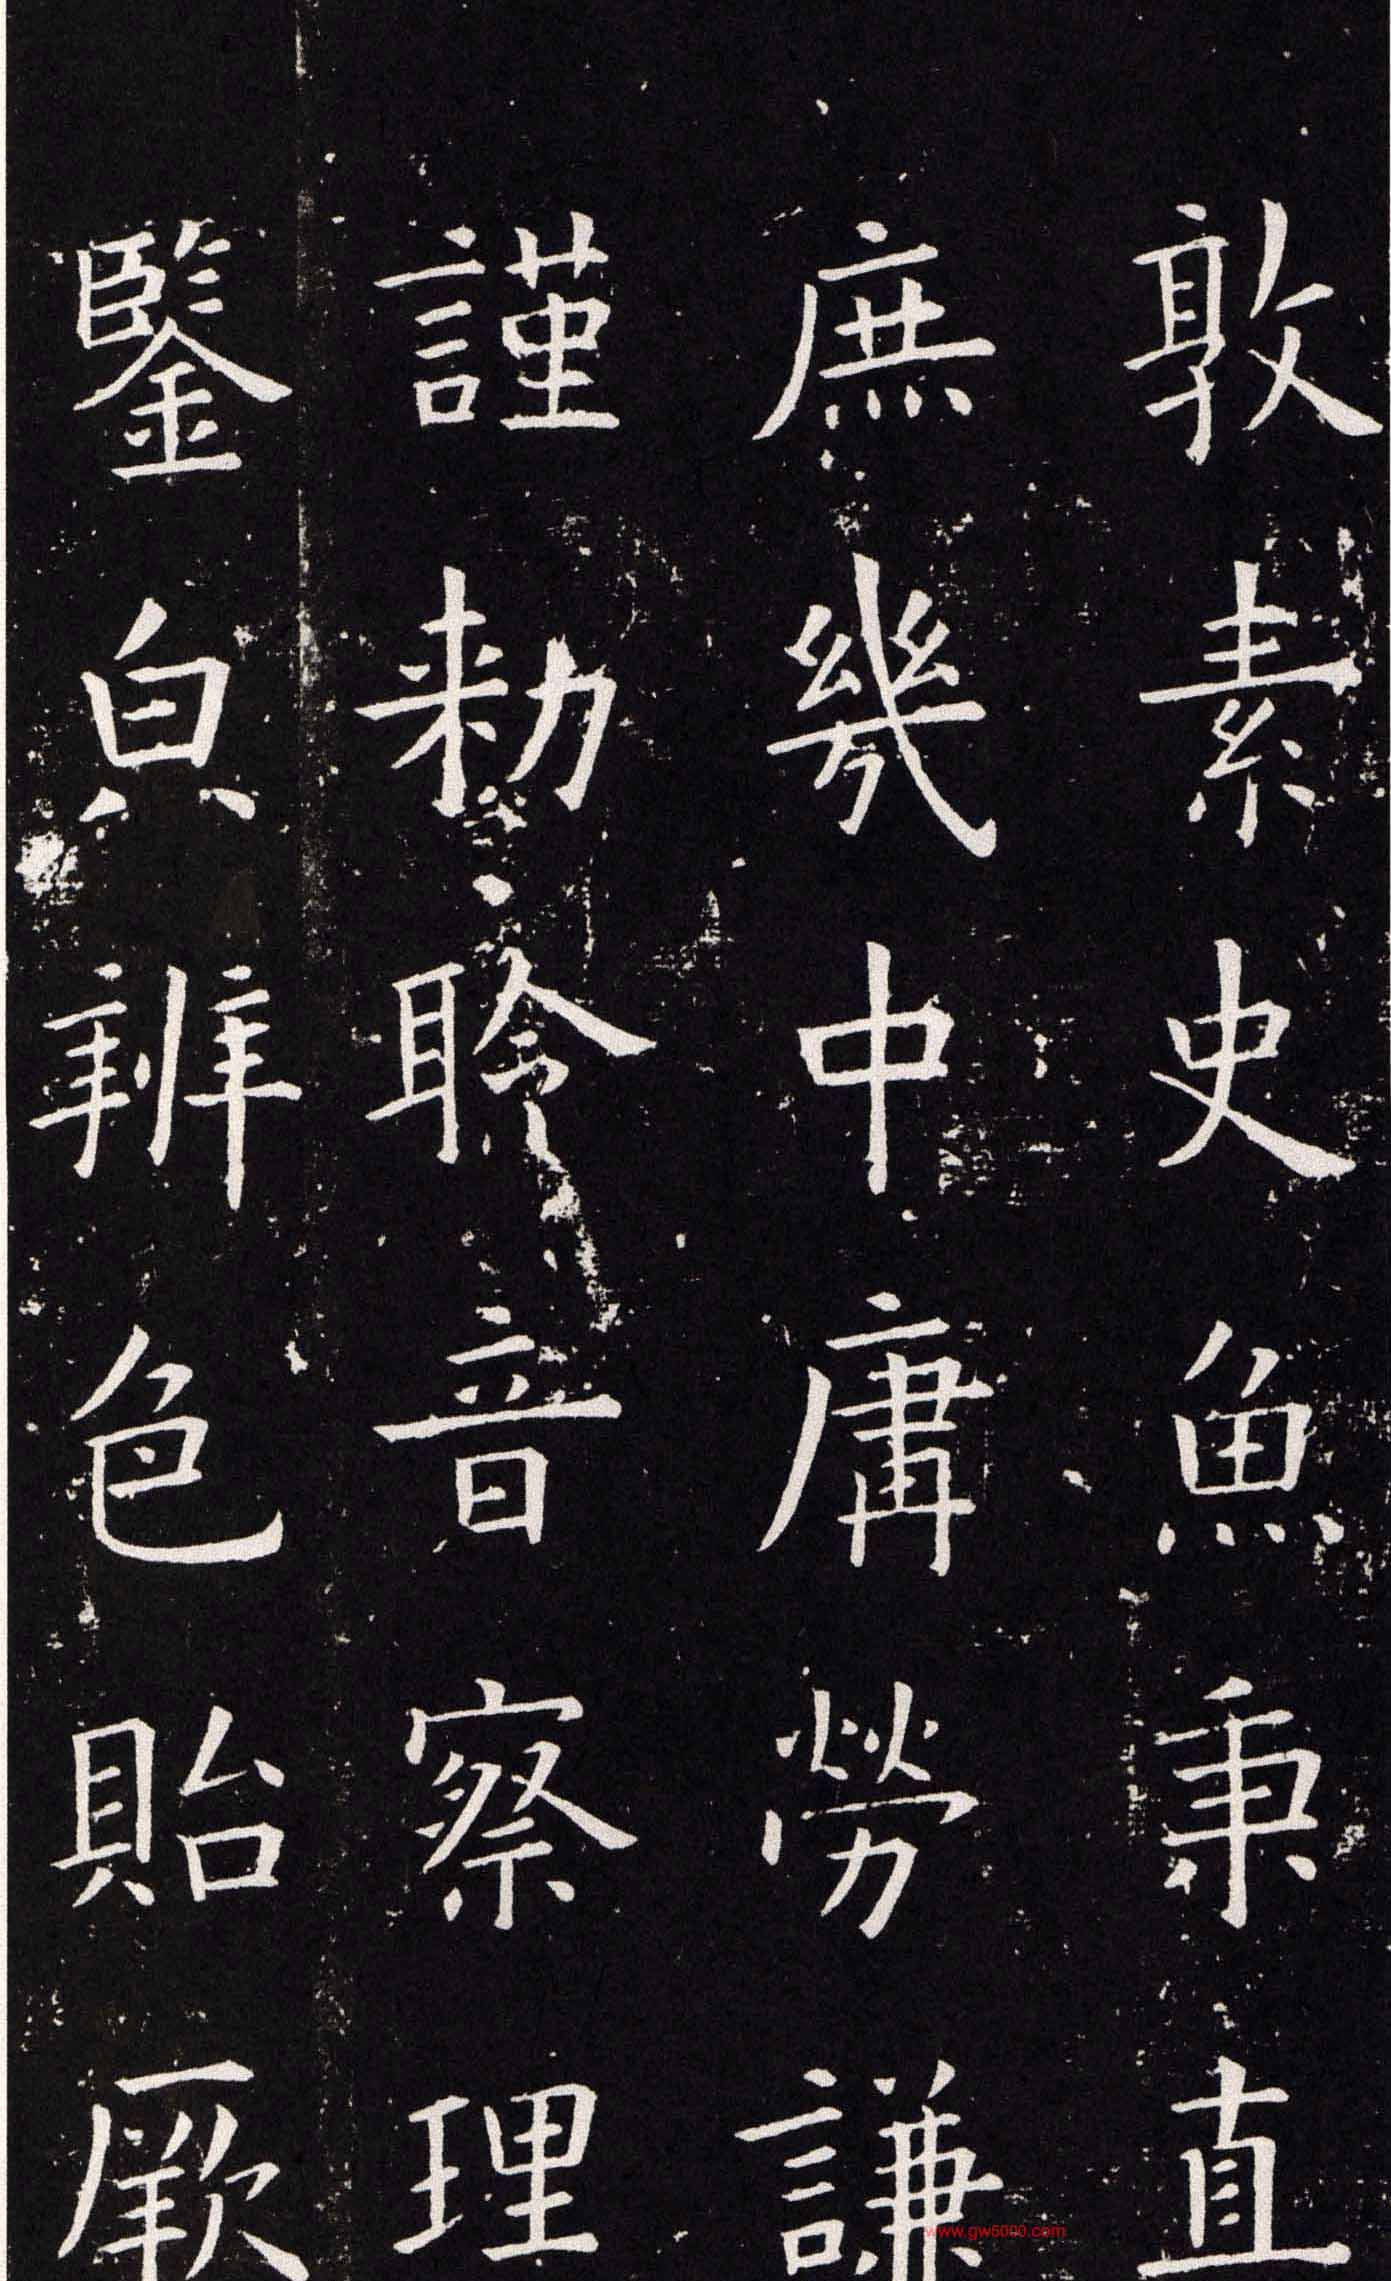 敦素史魚秉直
庶幾中庸勞謙
謹勑聆音察理
鑒皃辨色貽厥
www.gw5000.com